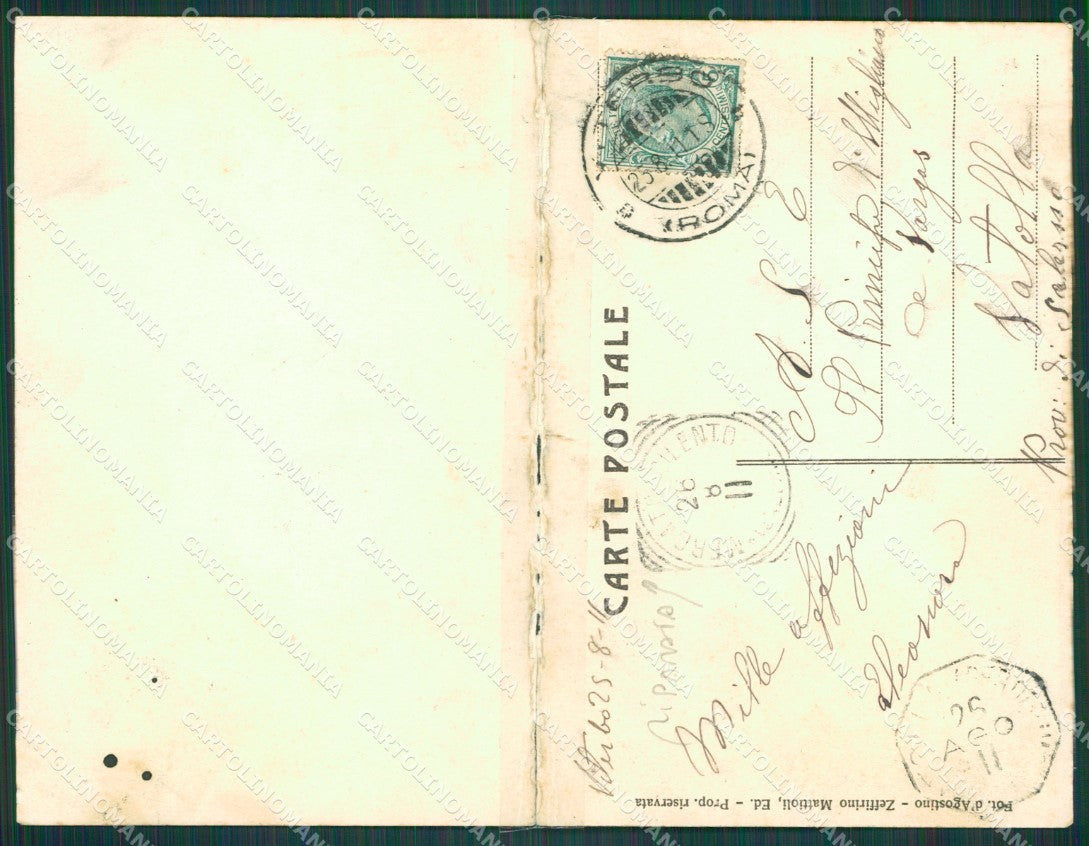 CARTE POSTALE
Viterbo 25-8-11
Mille affezioni
Eleonora
A S. E
Il Principe di Migliano
e
Vatolla
Prov. di Salerno
VITERBO
25.8.11.19
(ROMA)
CILENTO
26
8
11
26
AGO
11
Fot. d'Agostino - Zeffirino Mattioli, Ed. - Prop. riservata
CARTOLINOMANIA